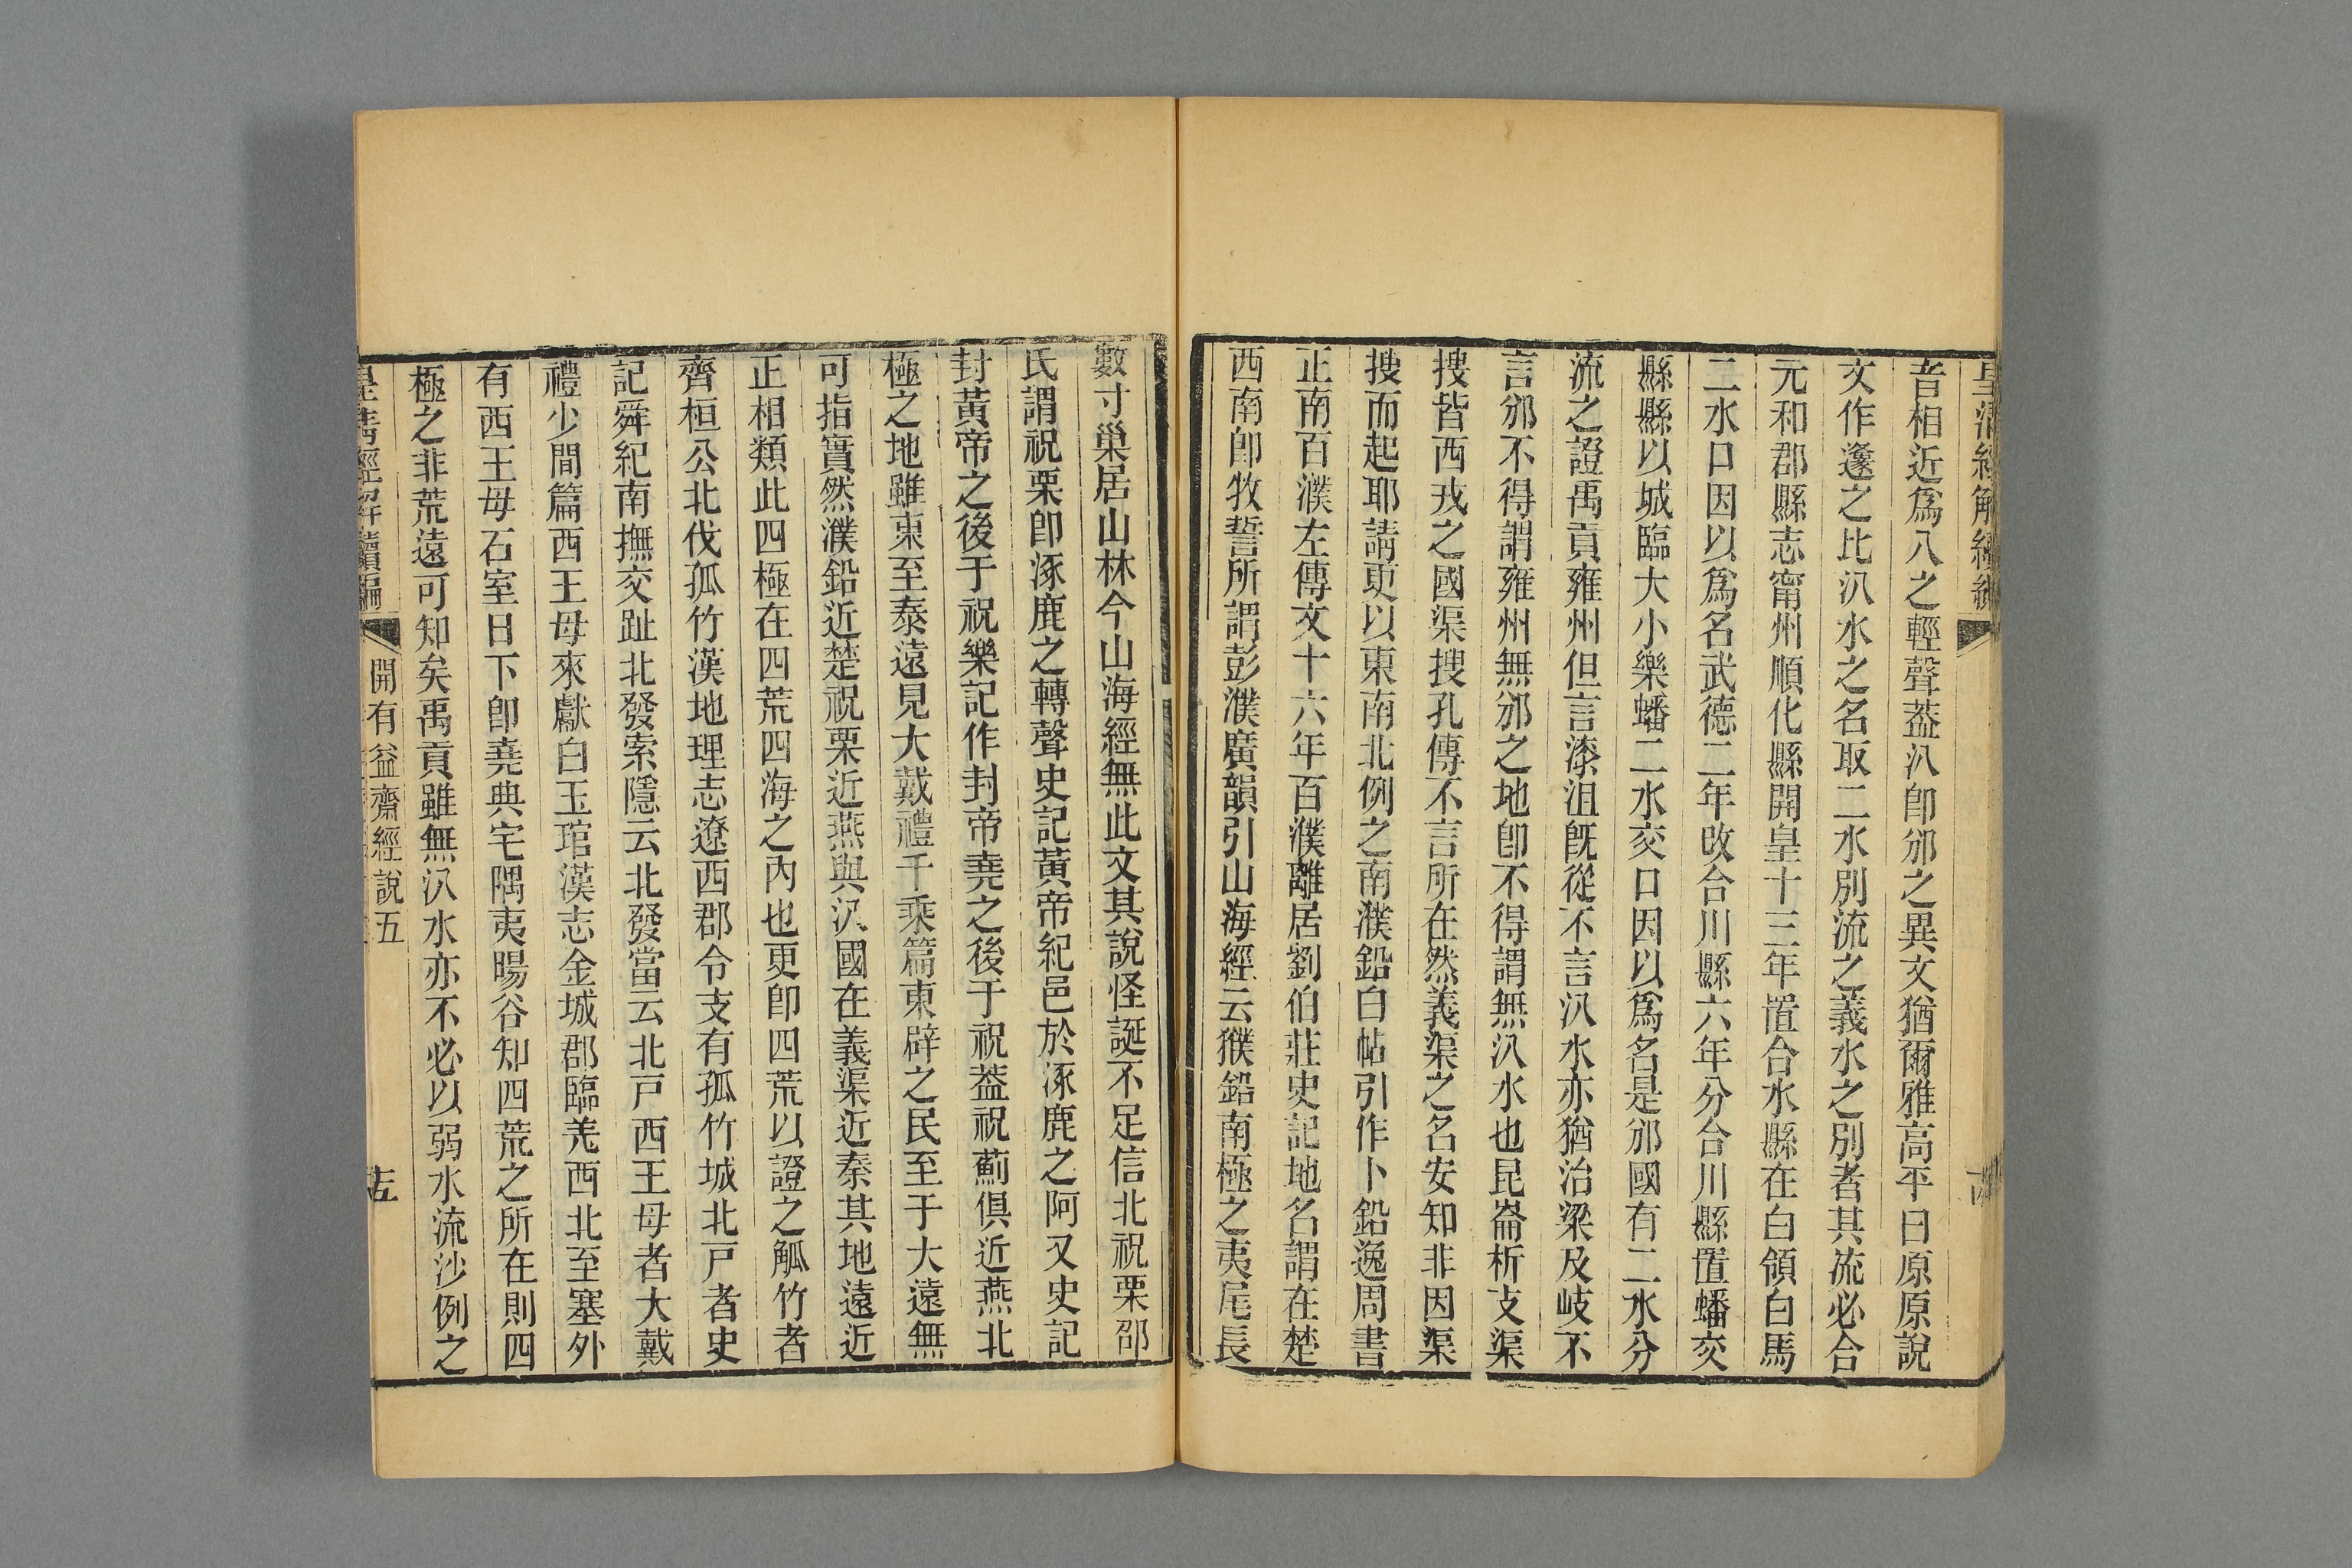 皇清經解續編
音相近爲八之輕聲葢汃卽邠之異文猶爾雅高平曰原原說
文作邍之比汃水之名取二水別流之義水之別者其流必合
元和郡縣志甯州順化縣開皇十三年置合水縣在白領白馬
二水口因以爲名武德二年改合川縣六年分合川縣置蟠交
縣縣以城臨大小樂蟠二水交口因以爲名是邠國有二水分
流之證禹貢雍州但言漆沮旣從不言汃水亦猶治梁及岐不
言邠不得謂雍州無邠之地卽不得謂無汃水也昆崙析支渠
搜皆西戎之國渠搜孔傳不言所在然義渠之名安知非因渠
搜而起耶請更以東南北例之南濮鉛白帖引作卜鉛逸周書
正南百濮左傳文十六年百濮離居劉伯莊史記地名謂在楚
西南卽牧誓所謂彭濮廣韻引山海經云獛鉛南極之夷尾長
數寸巢居山林今山海經無此文其說怪誕不足信北祝栗邵
氏謂祝栗卽涿鹿之轉聲史記黃帝紀邑於涿鹿之阿又史記
封黃帝之後于祝樂記作封帝堯之後于祝葢祝薊俱近燕北
極之地雖東至泰遠見大戴禮千乘篇東辟之民至于大遠無
可指實然濮鉛近楚祝栗近燕與汃國在義渠近秦其地遠近
正相類此四極在四荒四海之內也更卽四荒以證之觚竹者
齊桓公北伐孤竹漢地理志遼西郡令支有孤竹城北戸者史
記舜紀南撫交趾北發索隱云北發當云北戸西王母者大戴
禮少閒篇西王母來獻白玉琯漢志金城郡臨羌西北至塞外
有西王母石室日下卽堯典宅隅夷暘谷知四荒之所在則四
極之非荒遠可知矣禹貢雖無汃水亦不必以弱水流沙例之
皇清經解續編
開有益齋經說五
十五